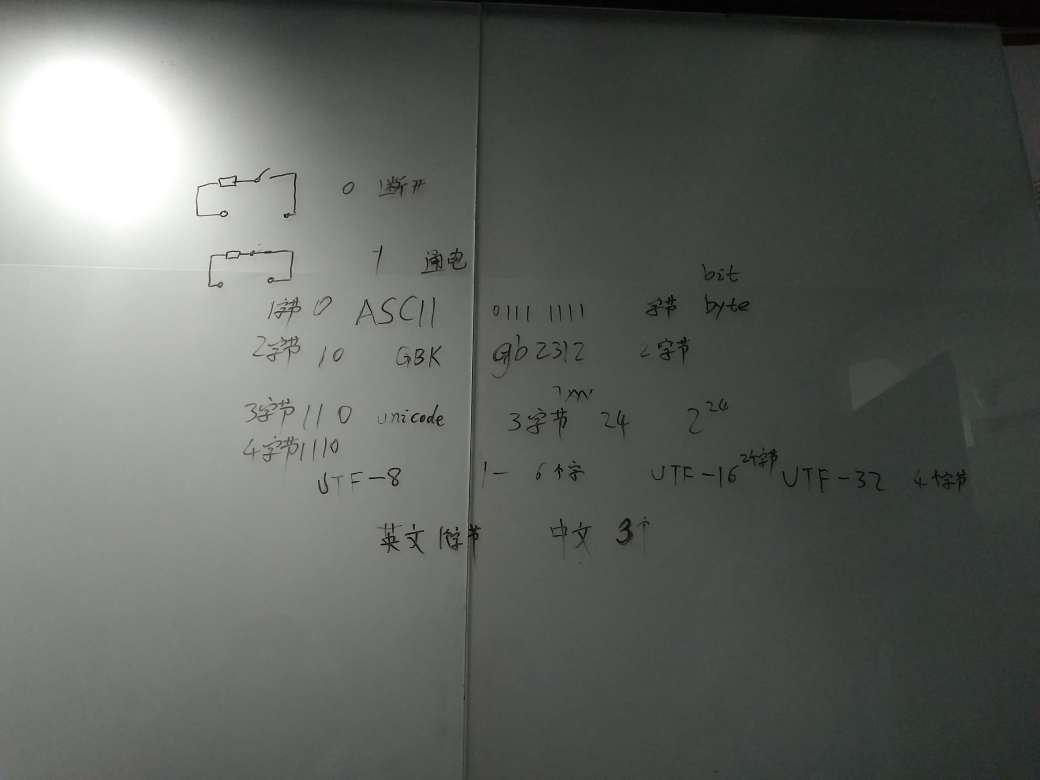 0 断开
1 通电
bit
1字节 0 ASCII 0111 1111 字节 byte
2字节 10 GBK gb2312 2字节
3字节 110 unicode 3字节 24 2^24
4字节 1110
UTF-8 1- 6个字 UTF-16 2个字节 UTF-32 4个字节
英文 1字节 中文 3个